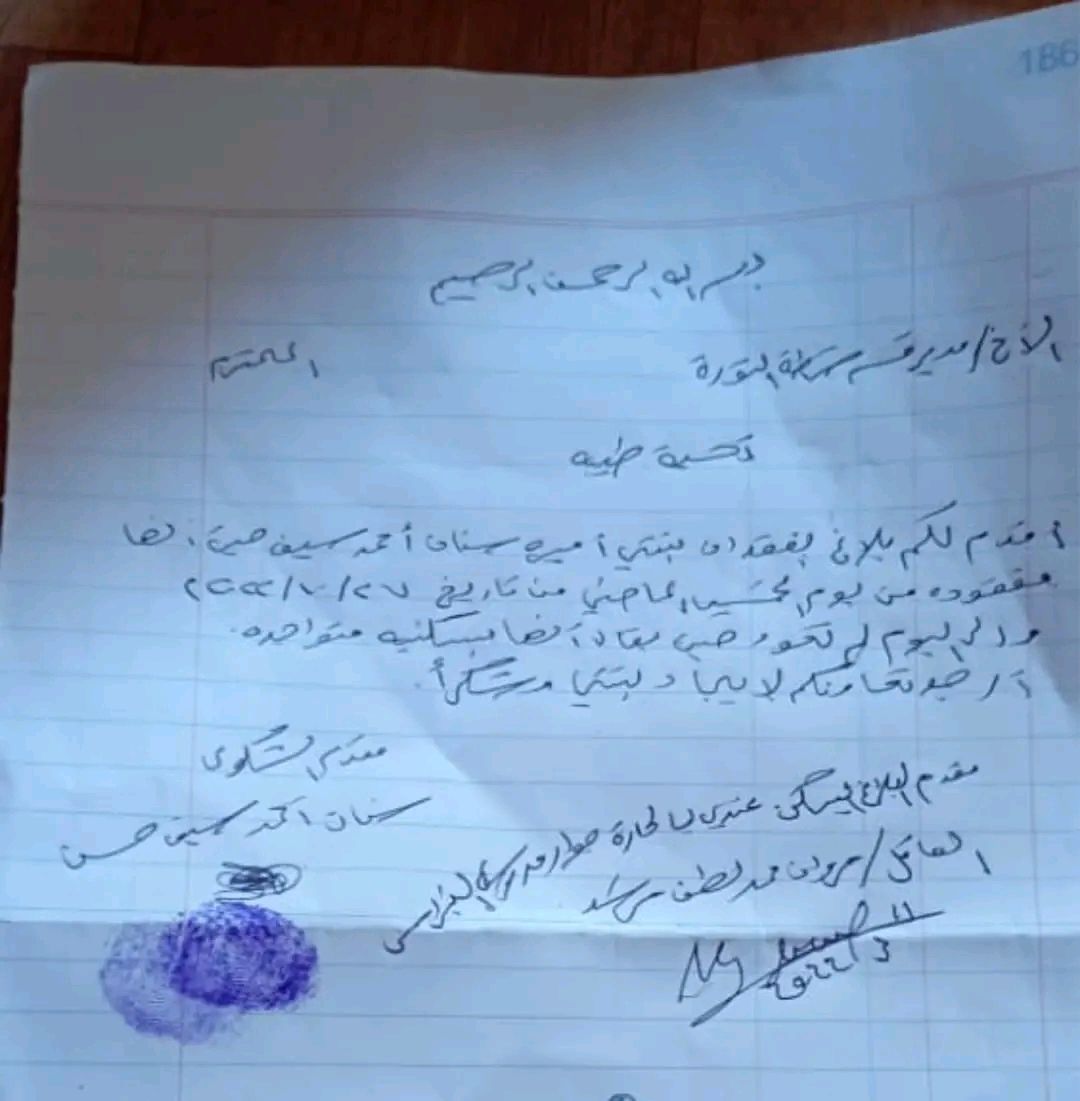 186
بسم الله الرحمن الرحيم
الأخ/ مدير قسم شرطة الثورة المحترم
تحية طيبه
أقدم لكم بلاغ بفقدان بنتي أميره سنان أحمد سيف حيث انها
مفقوده من يوم الخميس الماضي من تاريخ
والى اليوم لم تعود حيث انها متواجده.
أرجو تعاونكم لايجاد بنتي وشكراً.
مقدم الشكوى
سنان احمد سيف حسن
مقدم البلاغ يسكن عندي بالحارة جوار مدرسة
العاقل/ مروان محمد لطف مرشد